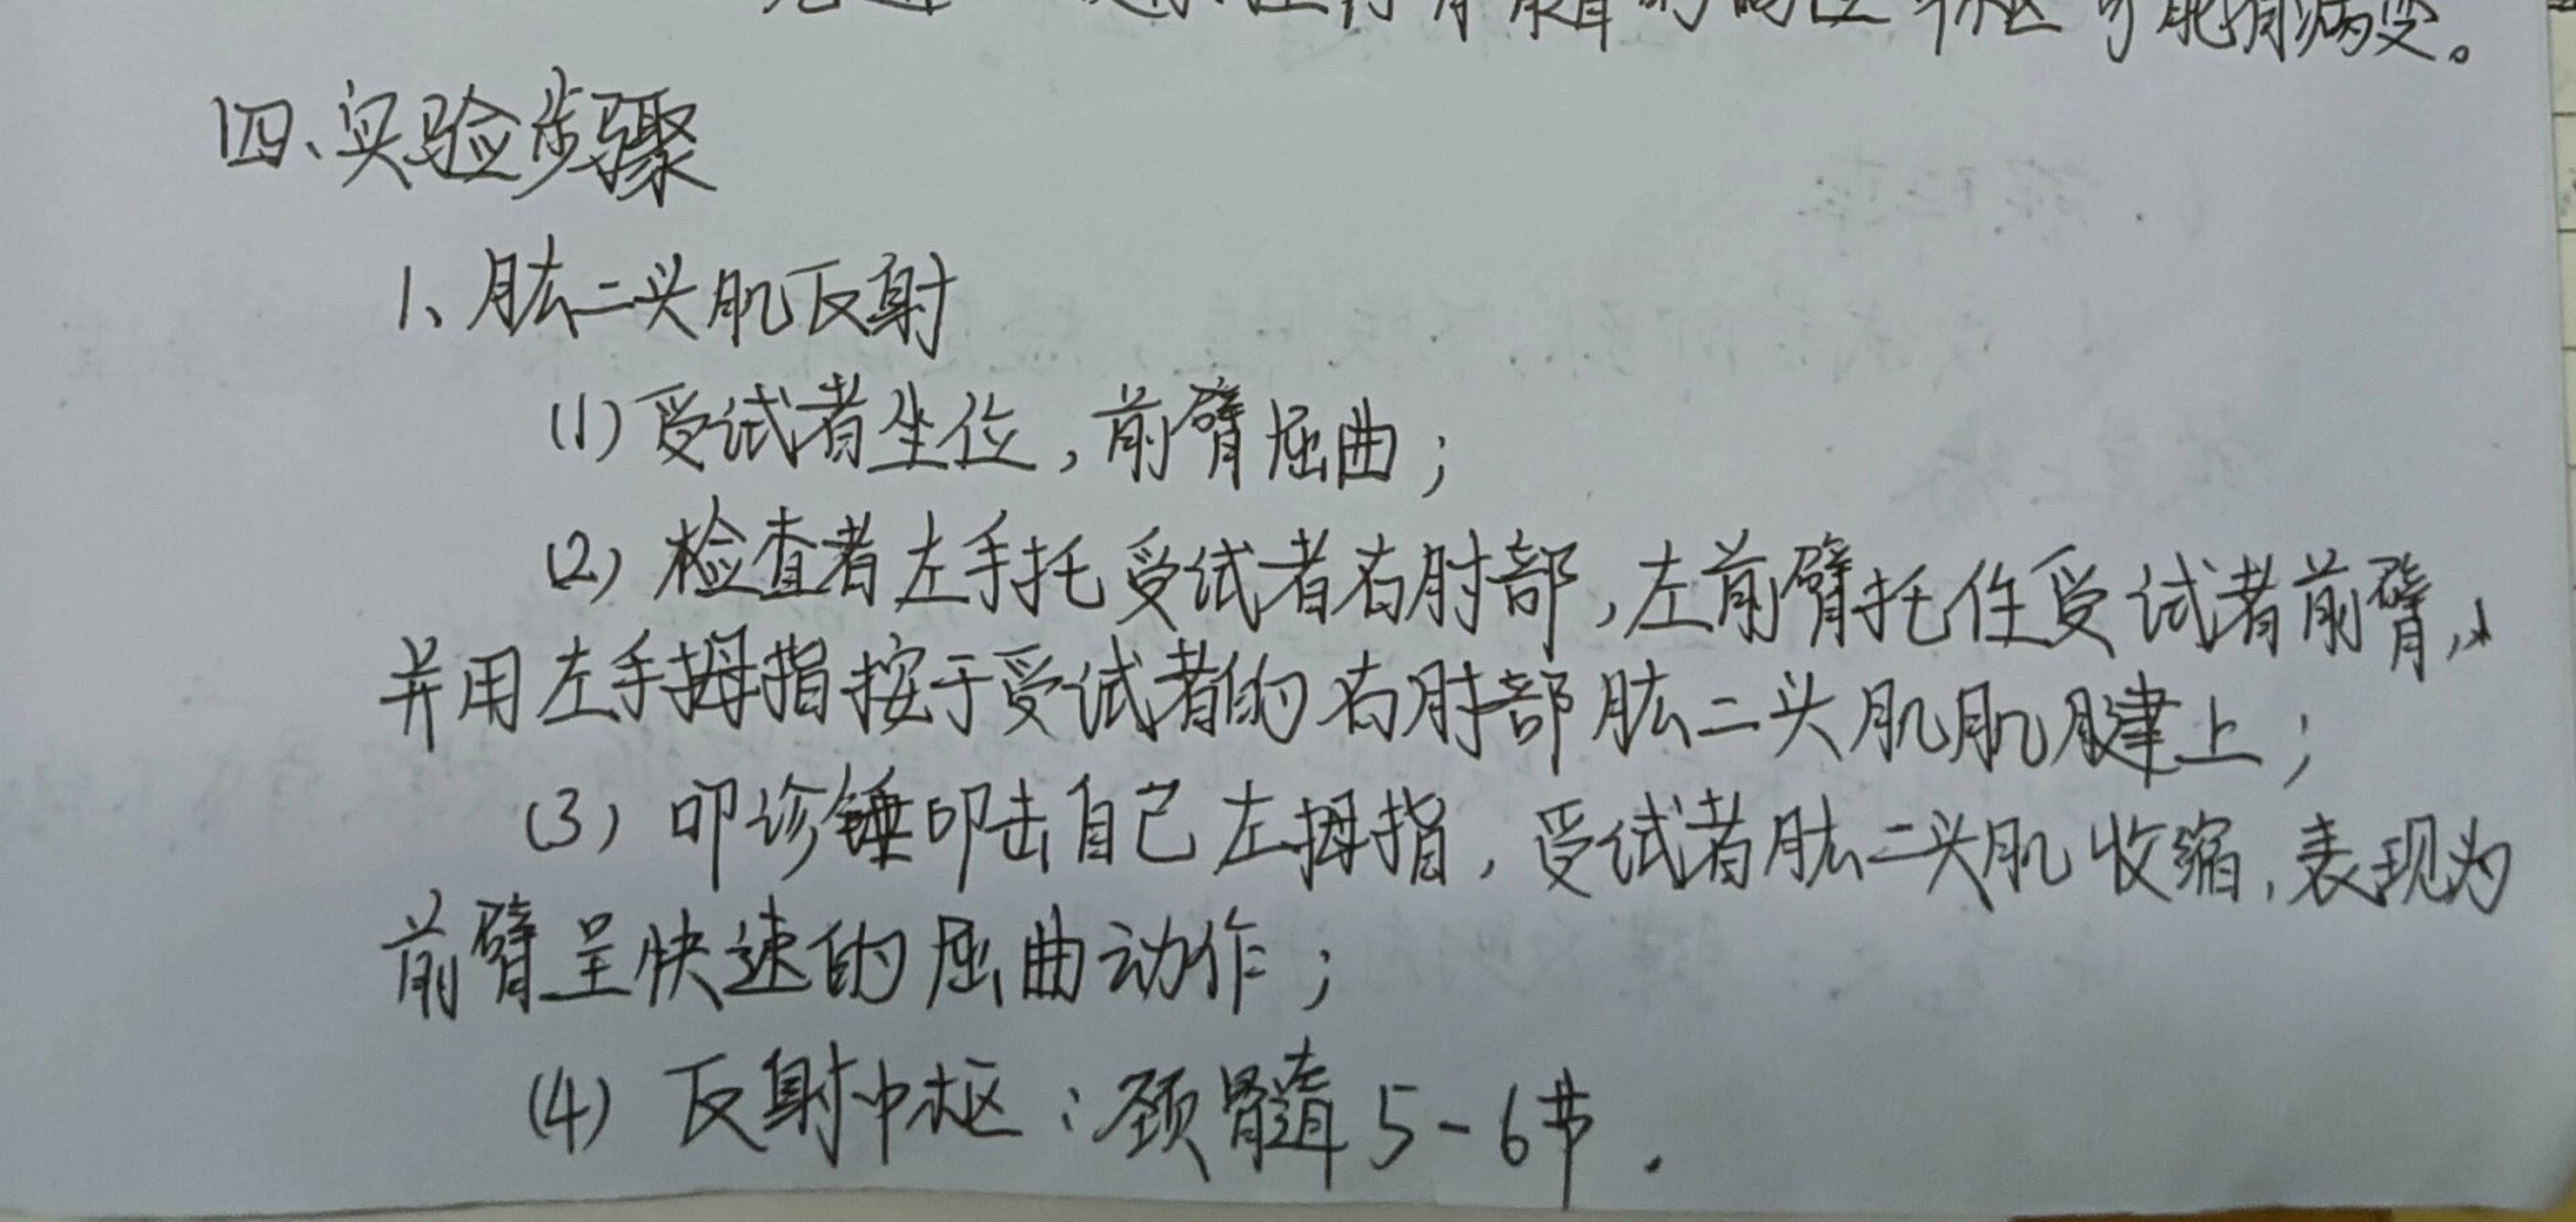 可能有病变。
四、实验步骤
1、肱二头肌反射
(1) 受试者坐位，前臂屈曲；
(2) 检查者左手托受试者右肘部，左前臂托住受试者前臂，
并用左手拇指按于受试者的右肘部肱二头肌肌腱上；
(3) 叩诊锤叩击自己左拇指，受试者肱二头肌收缩，表现为
前臂呈快速的屈曲动作；
(4) 反射中枢：颈髓5-6节.